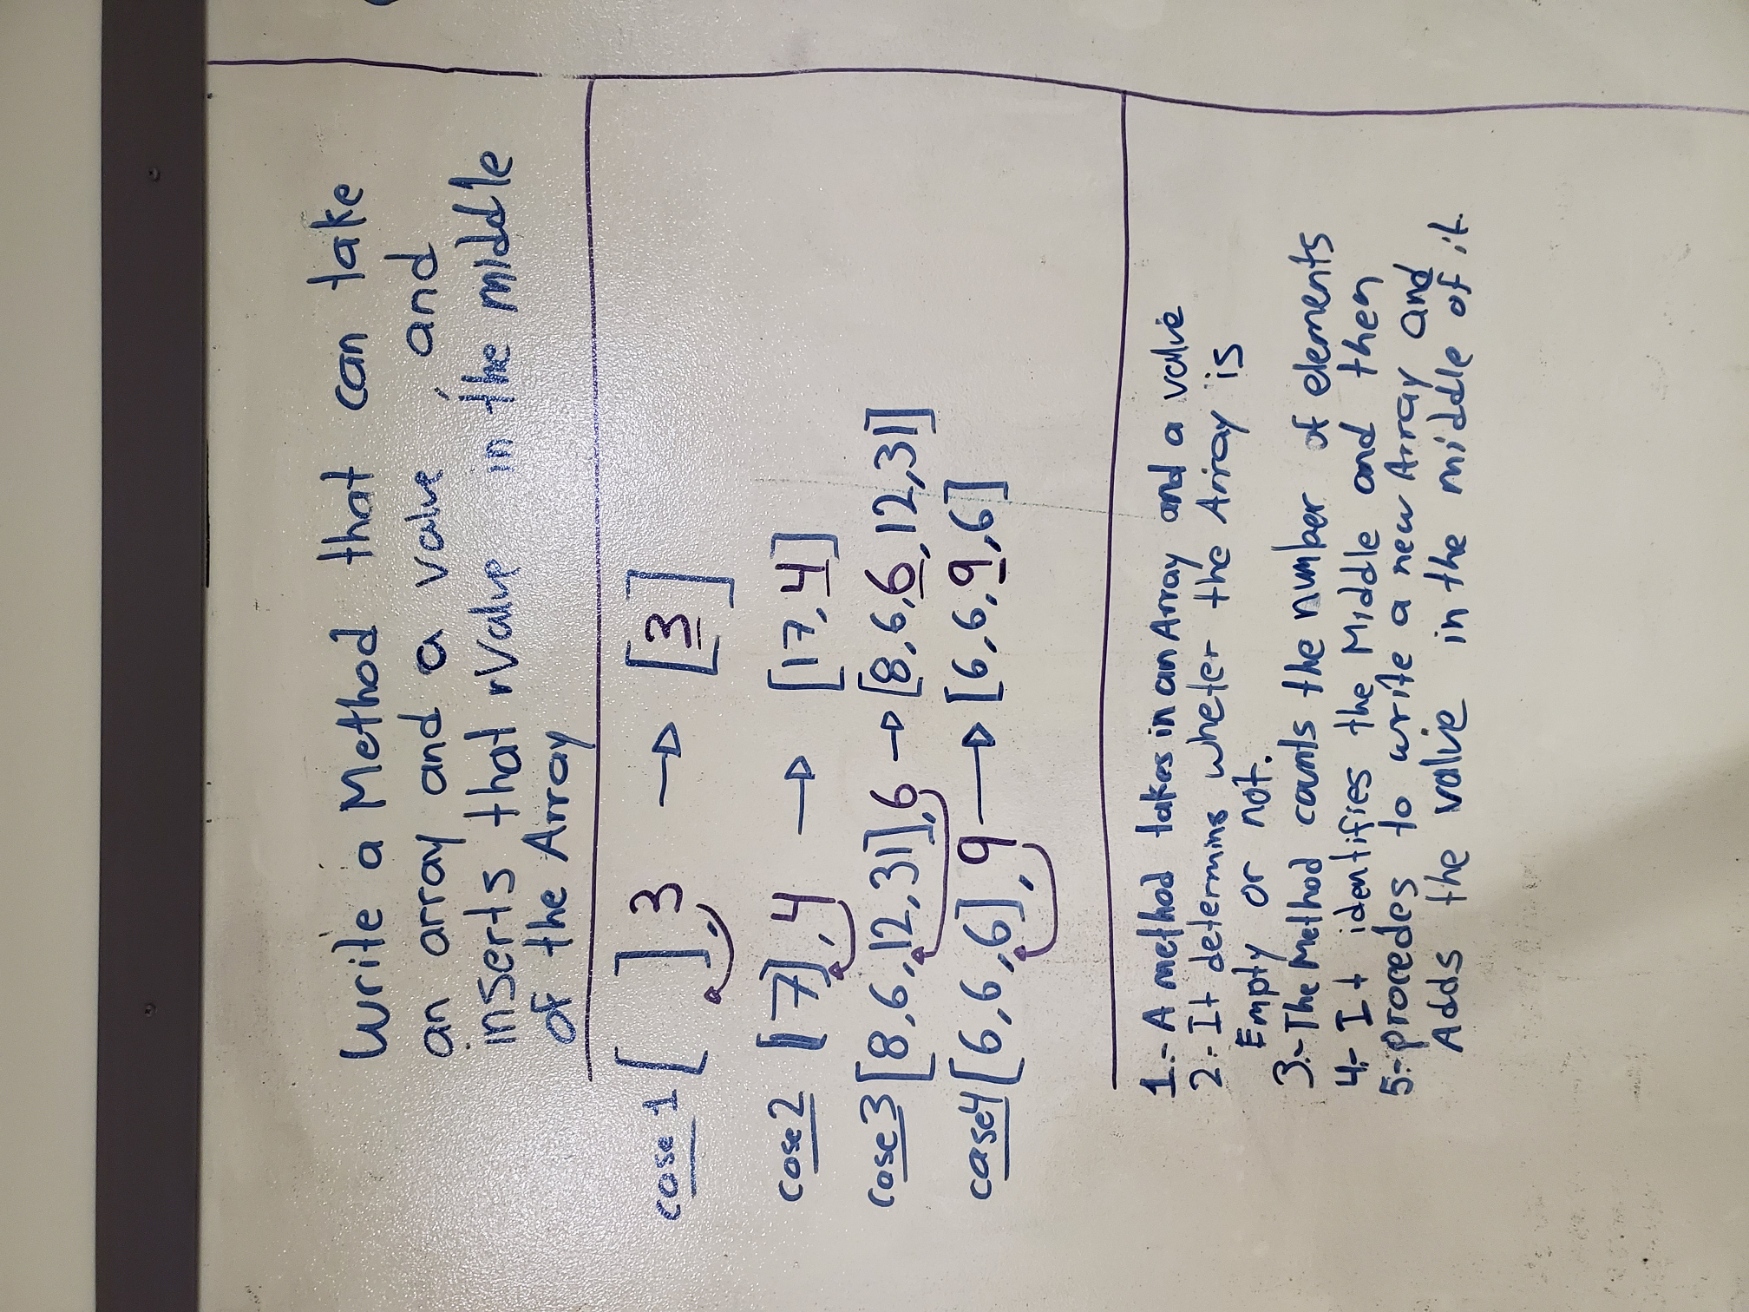 Write a Method that can take
an array and a value, and
inserts that rValue in the middle
of the Array
case 1 [ ], 3 → [3]
case 2 [17], 4 → [17, 4]
case 3 [8, 6, 12, 31], 6 → [8, 6, 6, 12, 31]
case 4 [6, 6, 6], 9 → [6, 6, 9, 6]
1.- A method takes in an Array and a value
2.- It determins wheter the Array is
Empty or not.
3.- The Method counts the number of elements
4.- It identifies the Middle and then
5.- procedes to write a new Array and
Adds the value in the middle of it.